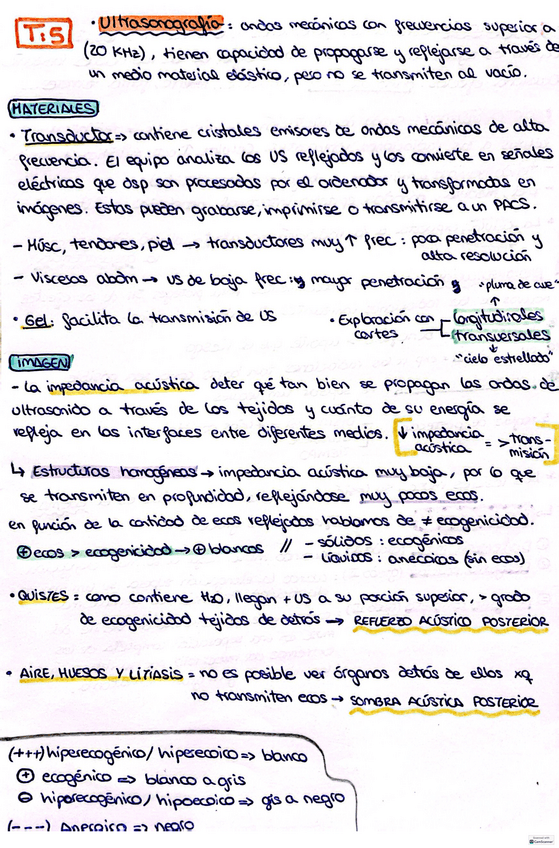 T:5
• Ultrasonografía = ondas mecánicas con frecuencias superior a
(20 KHz), tienen capacidad de propagarse y reflejarse a través de
un medio material elástico, pero no se transmiten al vacío.
MATERIALES
• Transductor => contiene cristales emisores de ondas mecánicas de alta
frecuencia. El equipo analiza los US reflejados y los convierte en señales
eléctricas que dsp son procesadas por el ordenador y transformadas en
imágenes. Estas pueden grabarse, imprimirse o transmitirse a un PACS.
- Músc, tendones, piel → transductores muy ↑ frec : poca penetración y
alta resolución
- Vísceras abdm → US de baja frec: mayor penetración
"pluma de ave"
↑
• Gel: facilita la transmisión de US
• Exploración con cortes
longitudinales
transversales
↓
"cielo estrellado"
IMAGEN
- La impedancia acústica deter qué tan bien se propagan las ondas de
ultrasonido a través de los tejidos y cuánto de su energía se
refleja en las interfaces entre diferentes medios.
[↓ impedancia acústica = > transmisión]
↳ Estructuras homogéneas → impedancia acústica muy baja, por lo que
se transmiten en profundidad, reflejándose muy pocos ecos.
en función de la cantidad de ecos reflejados hablamos de ≠ ecogenicidad.
⊕ ecos > ecogenicidad → ⊕ blancos // - sólidos : ecogénicos
- líquidos : anecoicas (sin ecos)
• QUISTES = como contiene H2O, llegan + US a su porción superior, > grado
de ecogenicidad tejidos de detrás → REFUERZO ACÚSTICO POSTERIOR
• AIRE, HUESOS Y LITIASIS = no es posible ver órganos detrás de ellos xq
no transmiten ecos → SOMBRA ACÚSTICA POSTERIOR
(+++) hiperecogénico / hiperecoico => blanco
⊕ ecogénico => blanco a gris
⊖ hipoecogénico / hipoecoico => gris a negro
(---) Anecoico => negro
CamScanner